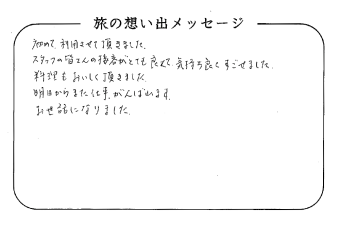 旅の想い出メッセージ
初めて、利用させて頂きました。
スタッフの皆さんの接客がとても良くて、気持ち良くすごせました。
料理もおいしく頂きました。
明日からまた仕事、がんばります。
お世話になりました。